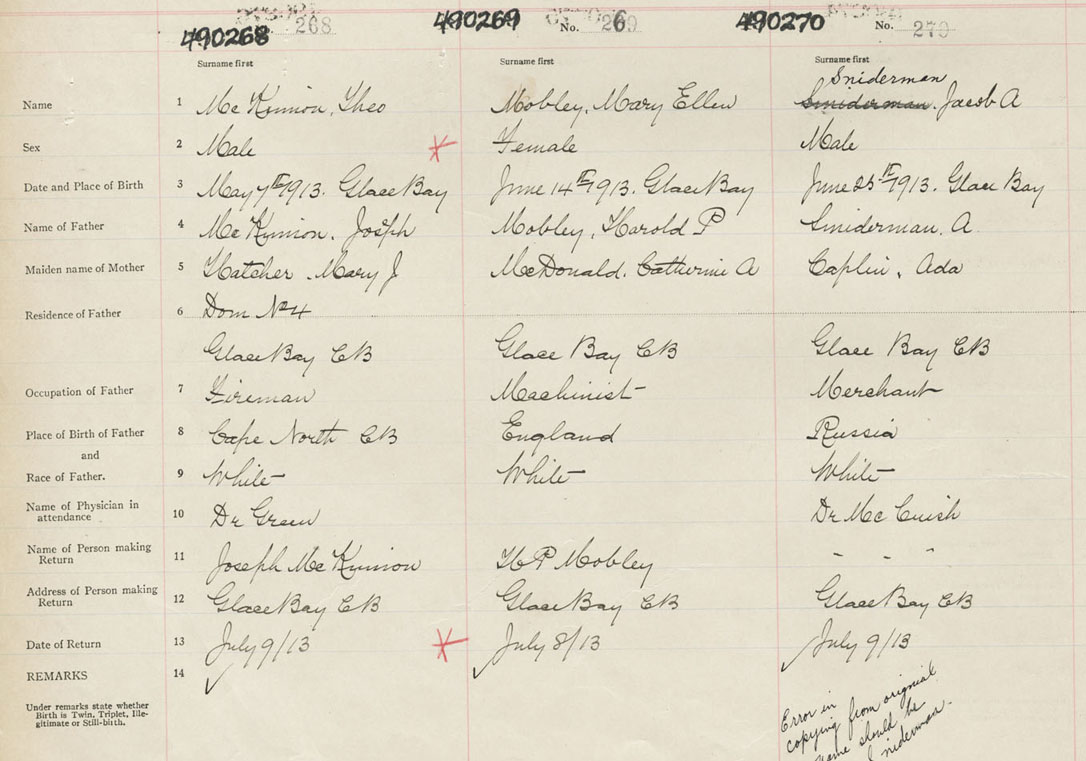 490268 268 490269 No. 269 490270 No. 270
Surname first Surname first Surname first
Sniderman
Name 1 McKinnon, Theo Mobley, Mary Ellen Smiderman, Jacob A
Sex 2 Male Female Male
Date and Place of Birth 3 May 7th 1913. Glace Bay June 14th 1913. Glace Bay June 25th 1913. Glace Bay
Name of Father 4 McKinnon, Joseph Mobley, Harold P Smiderman, A.
Maiden name of Mother 5 Hatcher Mary J McDonald, Catherine A Caplin, Ada
Residence of Father 6 Dom No 4
Glace Bay CB Glace Bay CB Glace Bay CB
Occupation of Father 7 Fireman Machinist Merchant
Place of Birth of Father 8 Cape North CB England Russia
and
Race of Father. 9 White White White
Name of Physician in
attendance 10 Dr Green Dr McCuish
Name of Person making
Return 11 Joseph McKinnon H P Mobley - - "
Address of Person making
Return 12 Glace Bay CB Glace Bay CB Glace Bay CB
Date of Return 13 July 9/13 July 8/13 July 9/13
REMARKS 14
Under remarks state whether
Birth is Twin, Triplet, Ille-
gitimate or Still-birth.
Error in
copying from original
name should be
Sniderman.